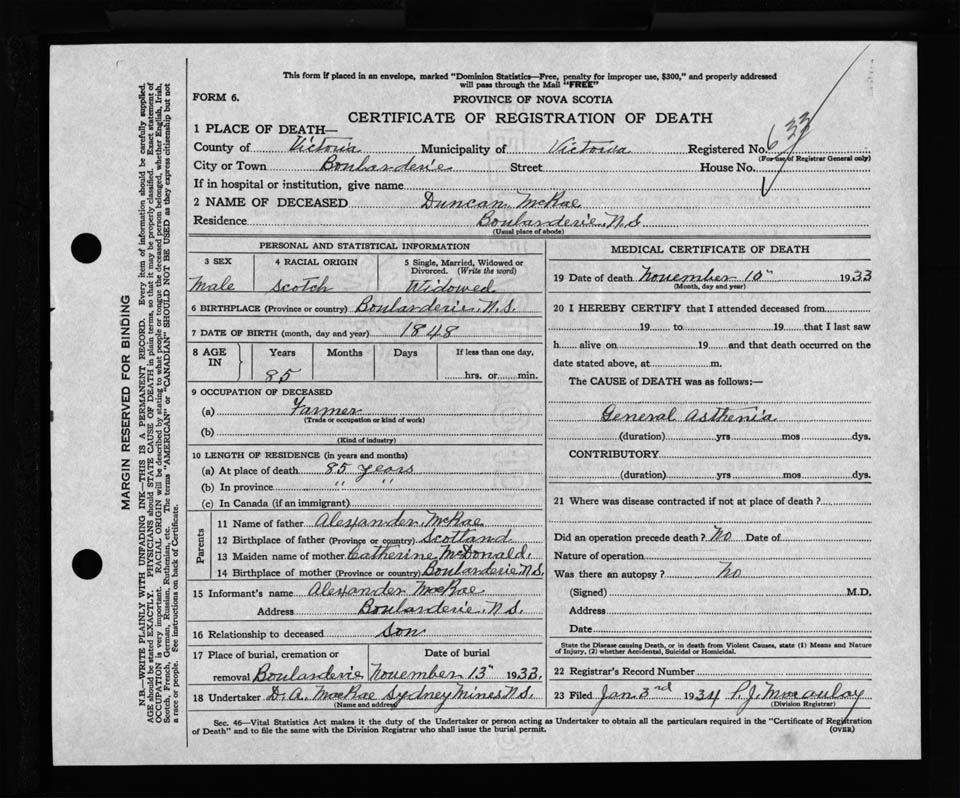 This form if placed in an envelope, marked "Dominion Statistics—Free, penalty for improper use, $300," and properly addressed
will pass through the Mail "FREE"
FORM 6.
PROVINCE OF NOVA SCOTIA
CERTIFICATE OF REGISTRATION OF DEATH
1 PLACE OF DEATH—
County of Victoria Municipality of Victoria Registered No.
(For use of Registrar General only)
City or Town Boularderie Street House No.
If in hospital or institution, give name
2 NAME OF DECEASED Duncan McRae
Residence Boularderie, N.S
(Usual place of abode)
PERSONAL AND STATISTICAL INFORMATION
3 SEX 4 RACIAL ORIGIN 5 Single, Married, Widowed or
Divorced. (Write the word)
Male Scotch Widowed
6 BIRTHPLACE (Province or country) Boularderie, N.S.
7 DATE OF BIRTH (month, day and year) 1848
8 AGE IN Years Months Days If less than one day,
85 hrs. or min.
9 OCCUPATION OF DECEASED
(a) Farmer
(Trade or occupation or kind of work)
(b)
(Kind of industry)
10 LENGTH OF RESIDENCE (in years and months)
(a) At place of death 85 years
(b) In province " "
(c) In Canada (if an immigrant)
Parents
11 Name of father Alexander McRae
12 Birthplace of father (Province or country) Scotland
13 Maiden name of mother Catherine McDonald
14 Birthplace of mother (Province or country) Boularderie N.S.
15 Informant's name Alexander MacRae
Address Boularderie, N.S.
16 Relationship to deceased son
17 Place of burial, cremation or Date of burial
removal Boularderie November 13th 1933.
18 Undertaker D. A. MacRae Sydney Mines N.S.
(Name and address)
MEDICAL CERTIFICATE OF DEATH
19 Date of death November 10th 1933
(Month, day and year)
20 I HEREBY CERTIFY that I attended deceased from
19 to 19 that I last saw
h alive on 19 and that death occurred on the
date stated above, at m.
The CAUSE of DEATH was as follows:—
General Asthenia
(duration) yrs mos dys.
CONTRIBUTORY
(duration) yrs mos dys.
21 Where was disease contracted if not at place of death?
Did an operation precede death? No Date of
Nature of operation
Was there an autopsy? No
(Signed) M.D.
Address
Date
State the Disease causing Death, or in death from Violent Causes, state (1) Means and Nature
of Injury, (2) whether Accidental, Suicidal or Homicidal.
22 Registrar's Record Number
23 Filed Jan 3rd 1934 P. J. Macaulay
(Division Registrar)
Sec. 46—Vital Statistics Act makes it the duty of the Undertaker or person acting as Undertaker to obtain all the particulars required in the "Certificate of Registration
of Death" and to file the same with the Division Registrar who shall issue the burial permit.
(OVER)
MARGIN RESERVED FOR BINDING
N.B.—WRITE PLAINLY WITH UNFADING INK—THIS IS A PERMANENT RECORD. Every item of information should be carefully supplied.
AGE should be stated EXACTLY. PHYSICIANS should STATE CAUSE OF DEATH in plain terms, so that it may be properly classified. Exact statement of
OCCUPATION is very important. RACIAL ORIGIN will be described by stating to what people or tongue the deceased person belonged, whether English, Irish,
Scotch, French, German, Russian, Ruthenian, etc. The terms "AMERICAN" or "CANADIAN SHOULD NOT BE USED as they express citizenship but not
a race or people. See instructions on back of Certificate.